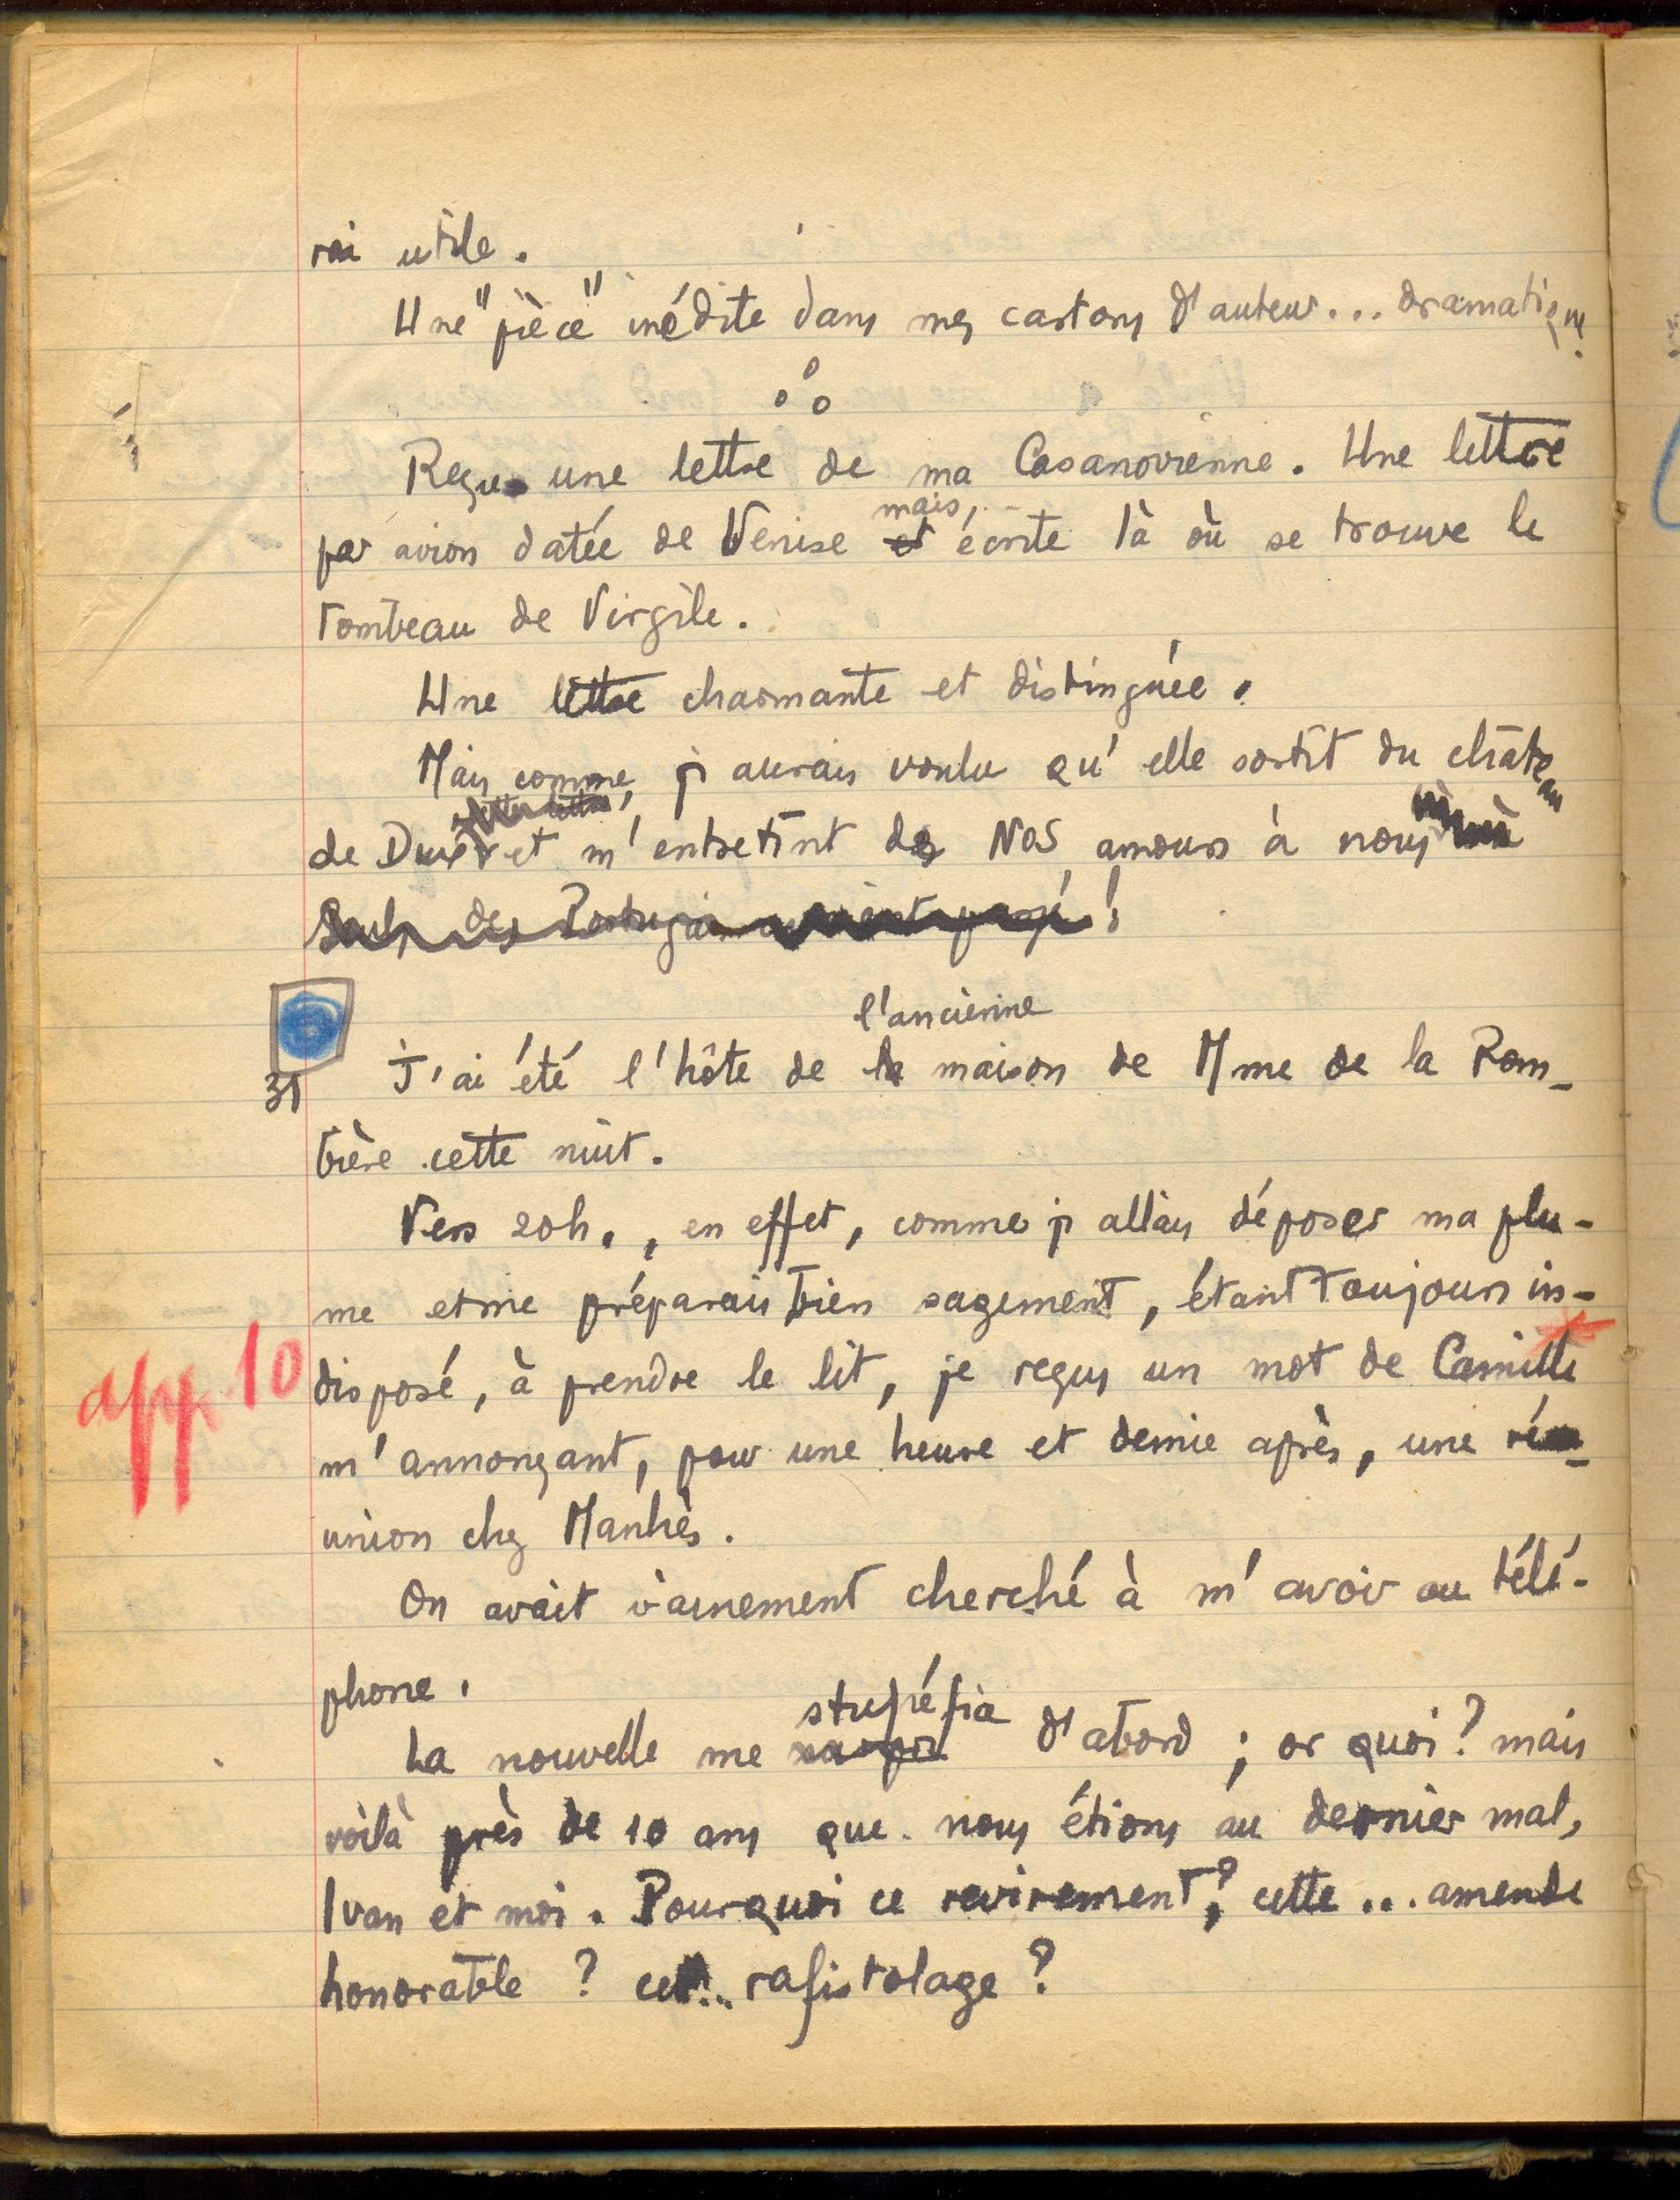 rai utile.
Une "pièce" inédite dans mes cartons d'auteur... dramatique!
Reçu une lettre de ma Casanovienne. Une lettre
mais,
par avion datée de Venise et écrite là où se trouve le
tombeau de Virgile.
Une lettre charmante et distinguée.
Mais comme j'aurais voulu qu'elle sortît du château
de Dux et m'entretînt de NOS amours à nous
!
l'ancienne
31 J'ai été l'hôte de la maison de Mme de la Pom-
bière cette nuit.
Vers 20h., en effet, comme j'allais déposer ma plu-
me et me préparais bien sagement, étant toujours in-
app 10 disposé, à prendre le lit, je reçus un mot de Camille
m'annonçant, pour une heure et demie après, une ré-
union chez Manhès.
On avait vainement cherché à m'avoir au télé-
phone.
stupéfia
La nouvelle me d'abord ; or quoi? mais
voilà près de 10 ans que nous étions au dernier mal,
Ivan et moi. Pourquoi ce revirement? cette ... amende
honorable ? ce... rafistolage ?